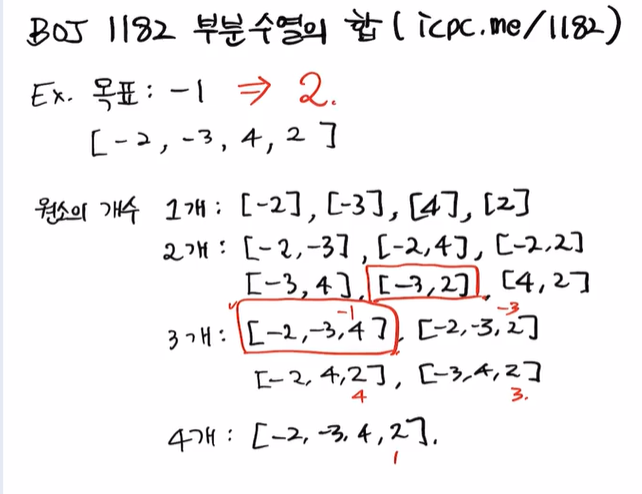 BOJ 1182 부분수열의 합 ( icpc.me/1182)
Ex. 목표 : -1 ⇒ 2.
[ -2, -3, 4, 2 ]
원소의 개수 1개 : [-2], [-3], [4], [2]
2개 : [-2, -3], [-2, 4], [-2, 2]
[-3, 4], [-3, 2], [4, 2]
-1 -3
3개 : [-2, -3, 4], [-2, -3, 2]
[-2, 4, 2], [-3, 4, 2]
4 3.
4개 : [-2, -3, 4, 2].
1